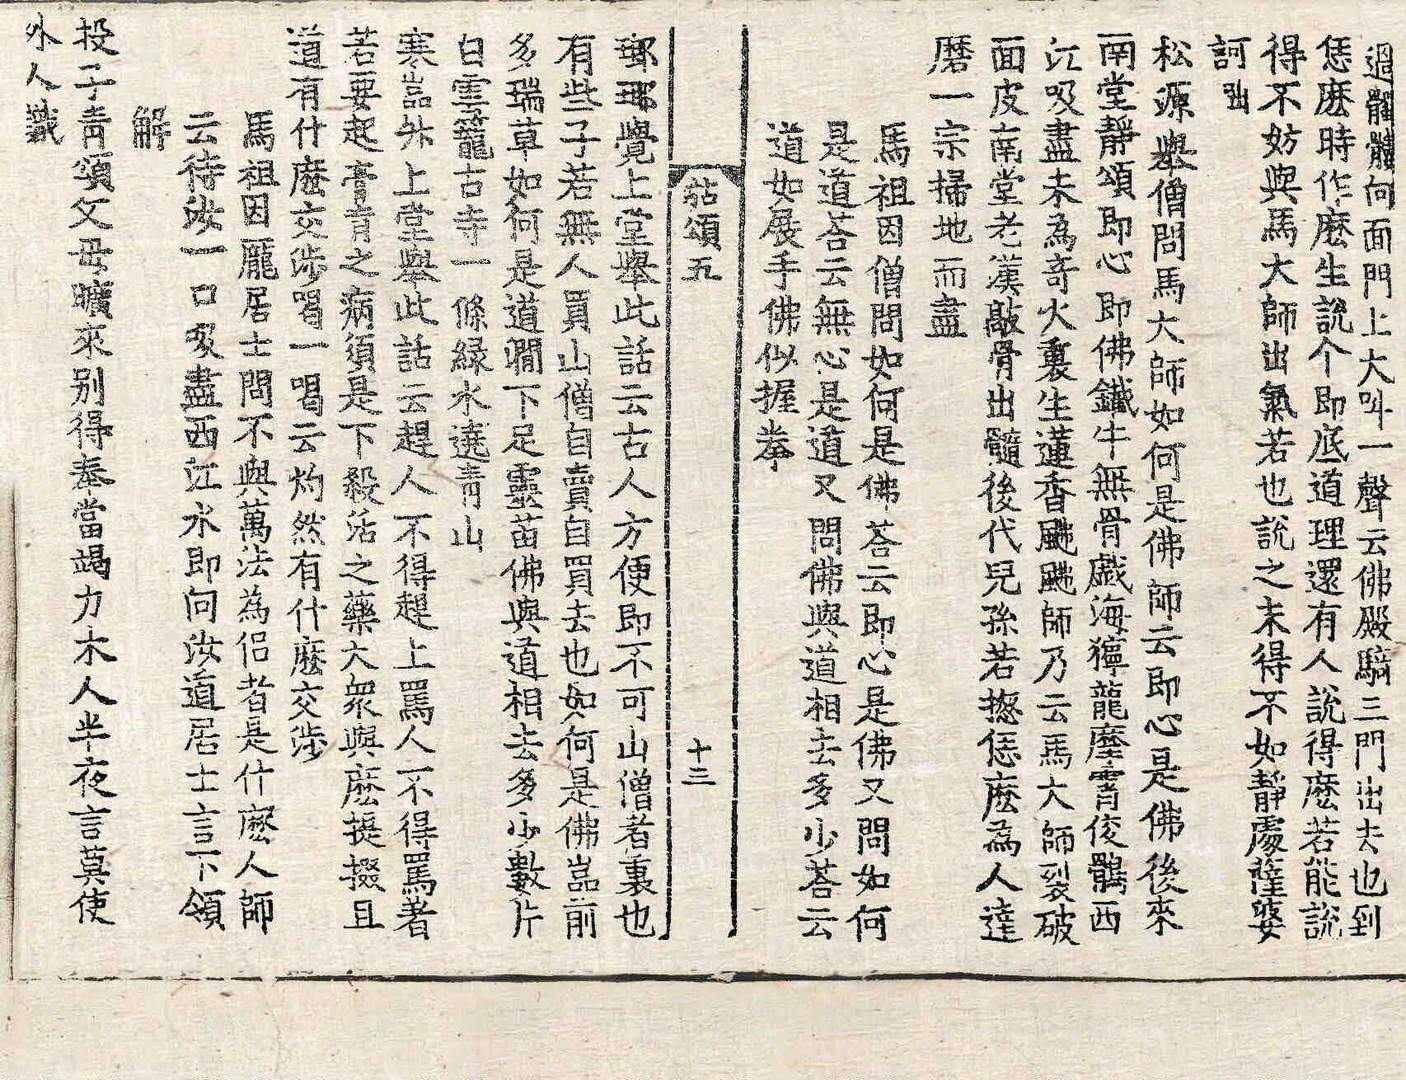 過髑髏向面門上大叫一聲云佛殿騎三門出去也到
恁麽時作麽生說个即底道理還有人說得麽若能說
得不妨與馬大師出氣若也說之未得不如靜處薩婆
訶
松源擧僧問馬大師如何是佛師云即心是佛後來
南堂靜頌即心即佛鐵牛無骨戱海獰龍摩霄俊鶻西
江吸盡未為奇火裏生蓮香颫颫師乃云馬大師裂破
面皮南堂老漢敲骨出髓後代兒孫若揔恁麽為人達
磨一宗掃地而盡
馬祖因僧問如何是佛荅云即心是佛又問如何
是道荅云無心是道又問佛與道相去多少荅云
道如展手佛似握拳
拈頌五 十三
瑯瑘覺上堂擧此話云古人方便即不可山僧者裏也
有些子若無人買山僧自賣自買去也如何是佛嵓前
多瑞草如何是道澗下足靈苗佛與道相去多少數片
白雲籠古寺一條緑水遶青山
寒嵓升上堂擧此話云趕人不得趕上罵人不得罵著
若要起膏肓之病須是下殺活之藥大衆與麽提掇且
道有什麽交涉喝一喝云灼然有什麽交涉
馬祖因龐居士問不與萬法為侶者是什麽人師
云待汝一口吸盡西江水即向汝道居士言下領
解
投子青頌父母曠來别得奉當竭力木人半夜言莫使
外人識